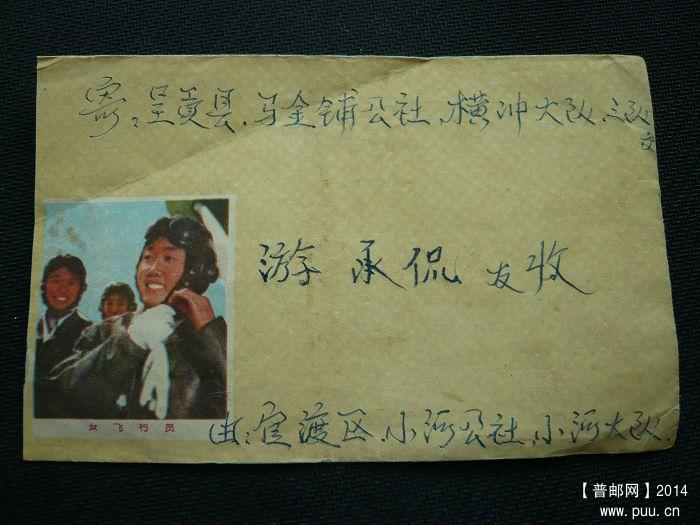 寄：呈贡县、马金铺公社、横冲大队、三队
交
游承侃 友收
女飞行员
由：官渡区、小河公社、小河大队.
【普邮网】2014
www.puu.cn